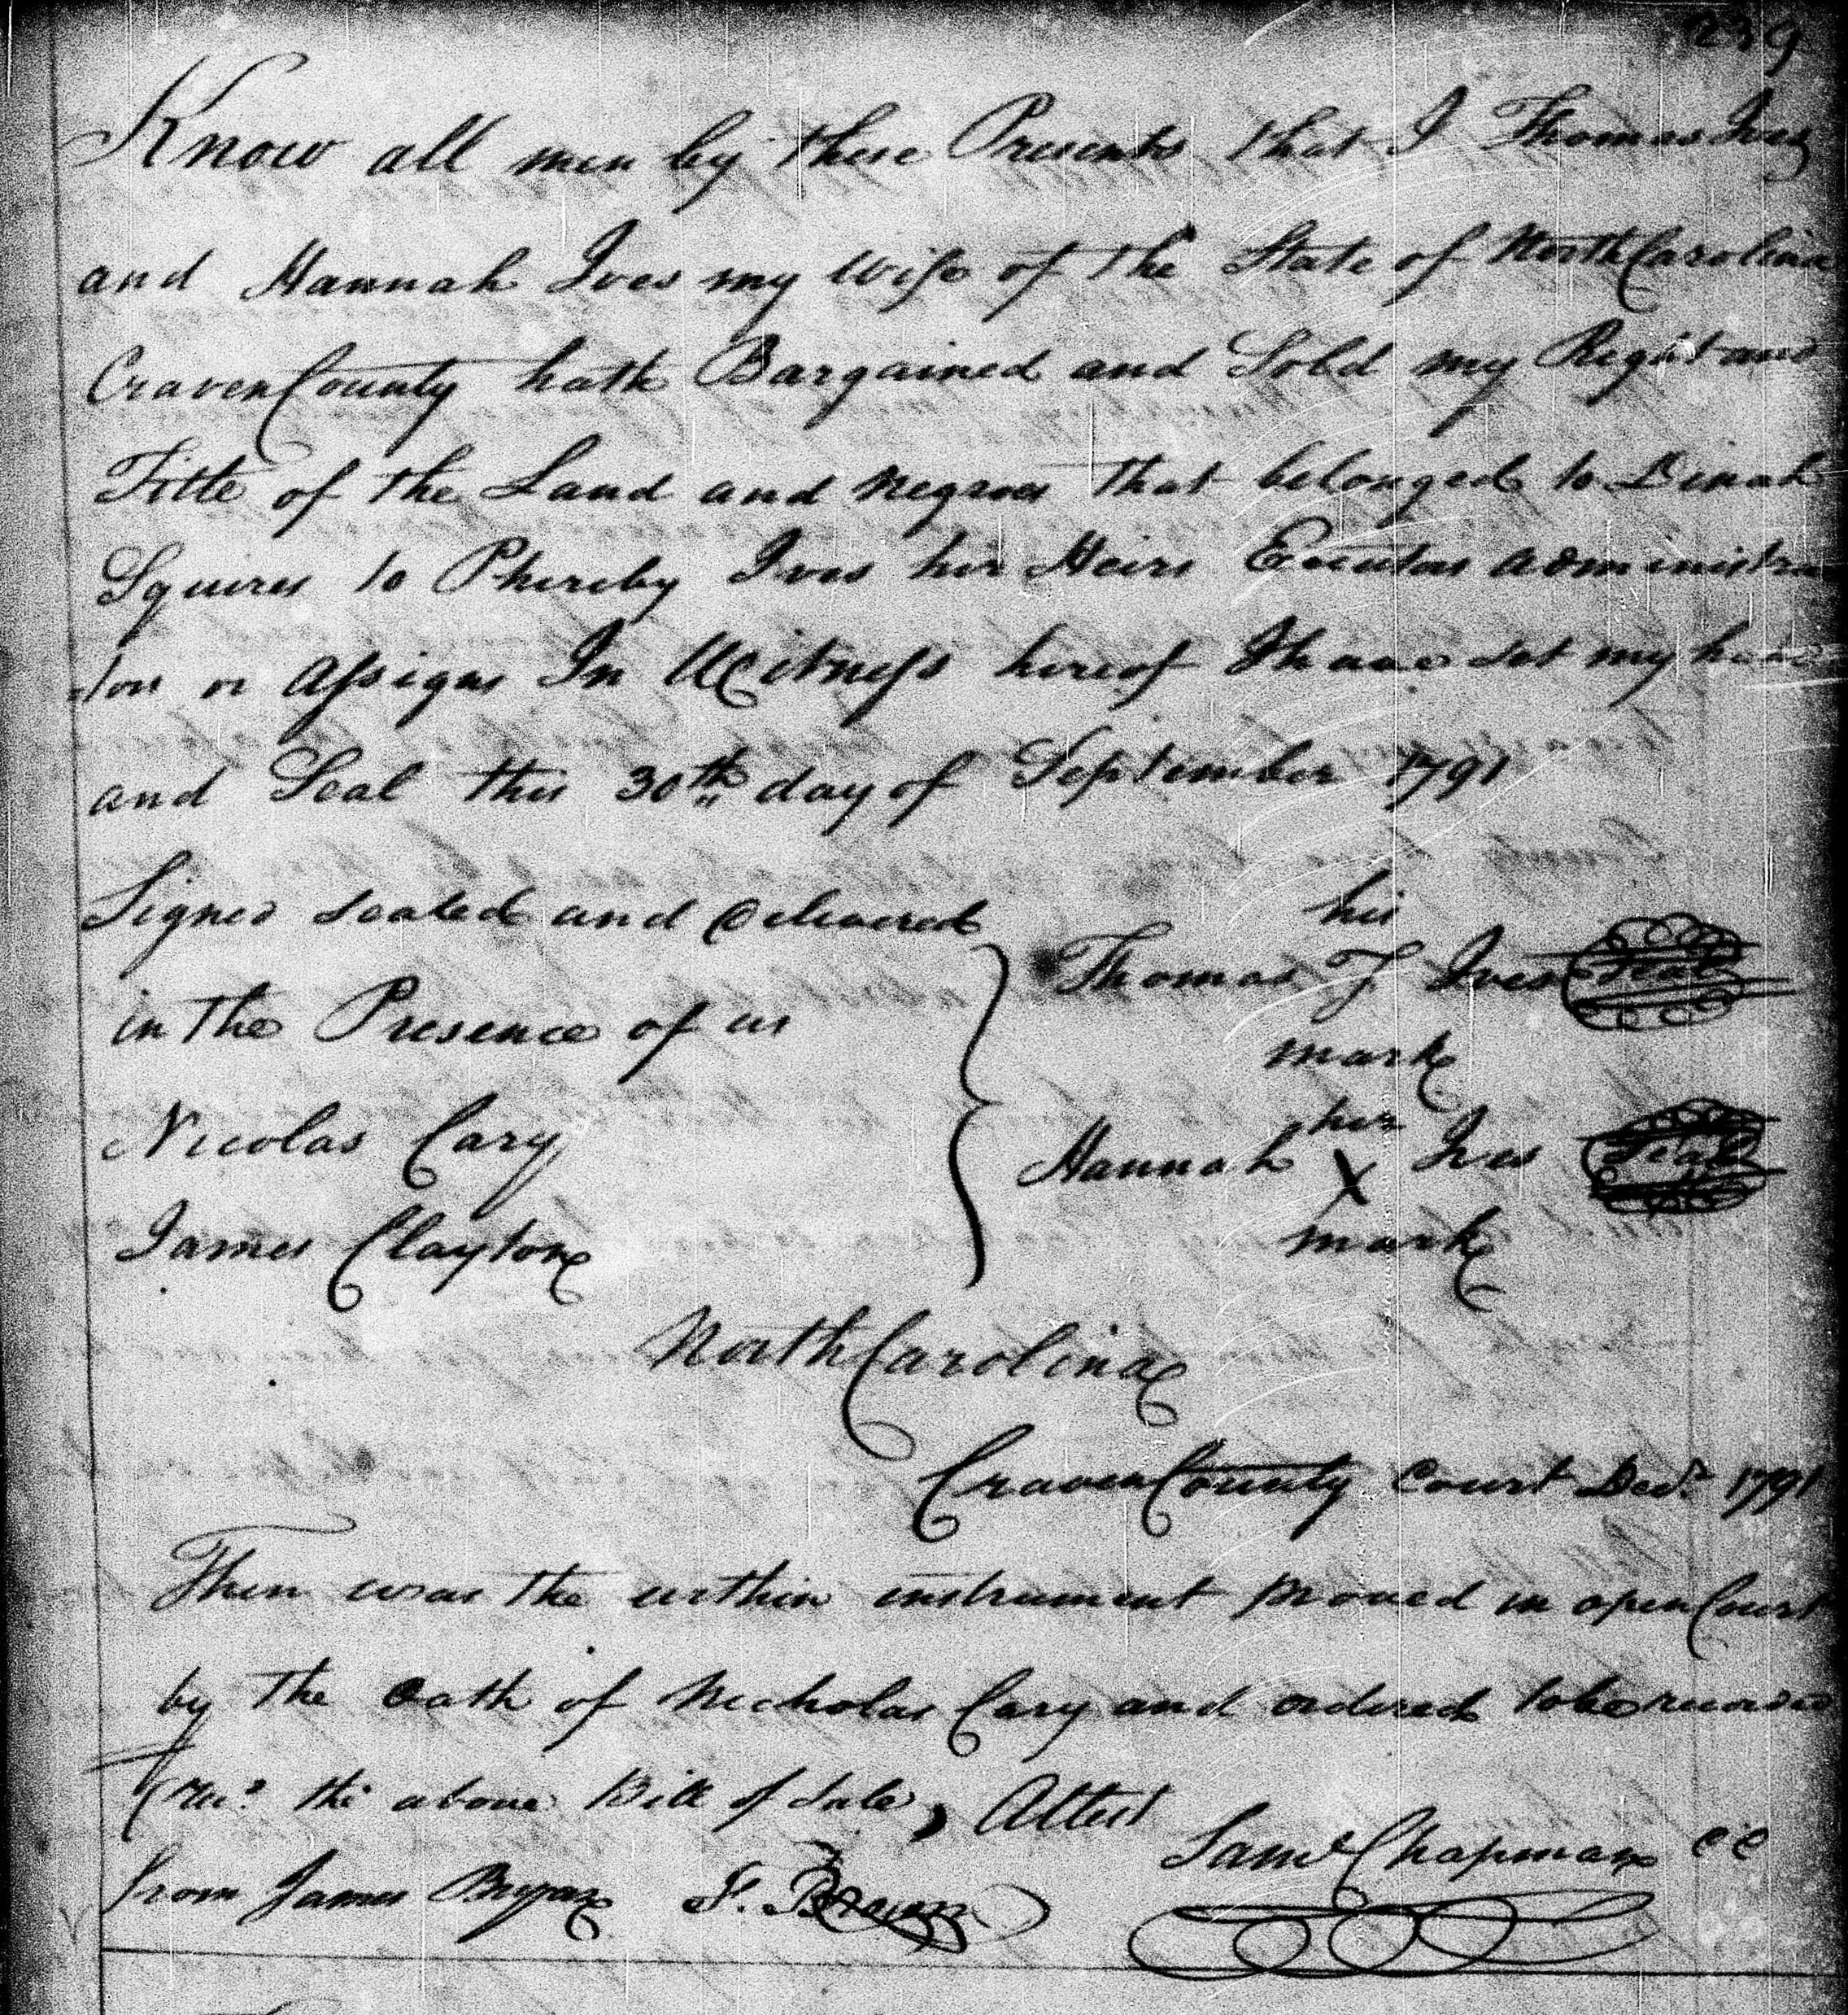 239
Know all men by these Presents that I Thomas Ives
and Hannah Ives my Wife of the State of North Carolina
Craven County hath Bargained and Sold my Right and
Title of the Land and Negroes that belonged to Dinah
Squires to Phereby Ives her Heirs Executors administra
tors or Assigns In Witness hereof I have Set my hand
and Seal this 30th day of September 1791
Signed Sealed and delivered
in the Presence of us
Nicolas Cary
James Clayton
his
Thomas J Ives Seal
mark
her
Hannah X Ives Seal
mark
North Carolina
Craven County Court Decr. 1791
Then was the within instrument proved in open Court
by the Oath of Nicholas Cary and ordered to be recorded
the above Bill of Sale, Attest
from James Bryan
Saml Chapman CC